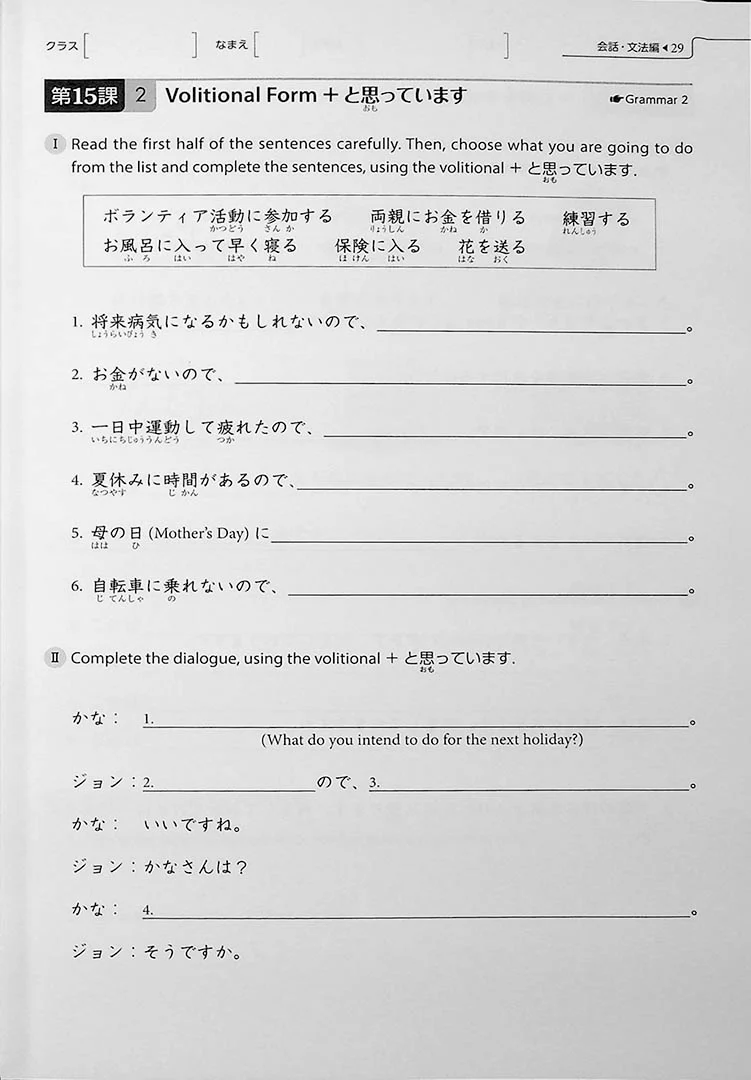 クラス[ ] なまえ[ ] 会話・文法編◀29
第15課 2 Volitional Form + と思っています ☛Grammar 2
おも
I Read the first half of the sentences carefully. Then, choose what you are going to do
from the list and complete the sentences, using the volitional + と思っています.
おも
ボランティア活動に参加する 両親にお金を借りる 練習する
かつどう さんか りょうしん かね か れんしゅう
お風呂に入って早く寝る 保険に入る 花を送る
ふろ はい はや ね ほけん はい はな おく
1. 将来病気になるかもしれないので、 。
しょうらいびょうき
2. お金がないので、 。
かね
3. 一日中運動して疲れたので、 。
いちにちじゅううんどう つか
4. 夏休みに時間があるので、 。
なつやす じかん
5. 母の日 (Mother's Day) に 。
はは ひ
6. 自転車に乗れないので、 。
じてんしゃ の
II Complete the dialogue, using the volitional + と思っています.
おも
かな: 1. 。
(What do you intend to do for the next holiday?)
ジョン:2. ので、3. 。
かな: いいですね。
ジョン:かなさんは?
かな: 4. 。
ジョン:そうですか。